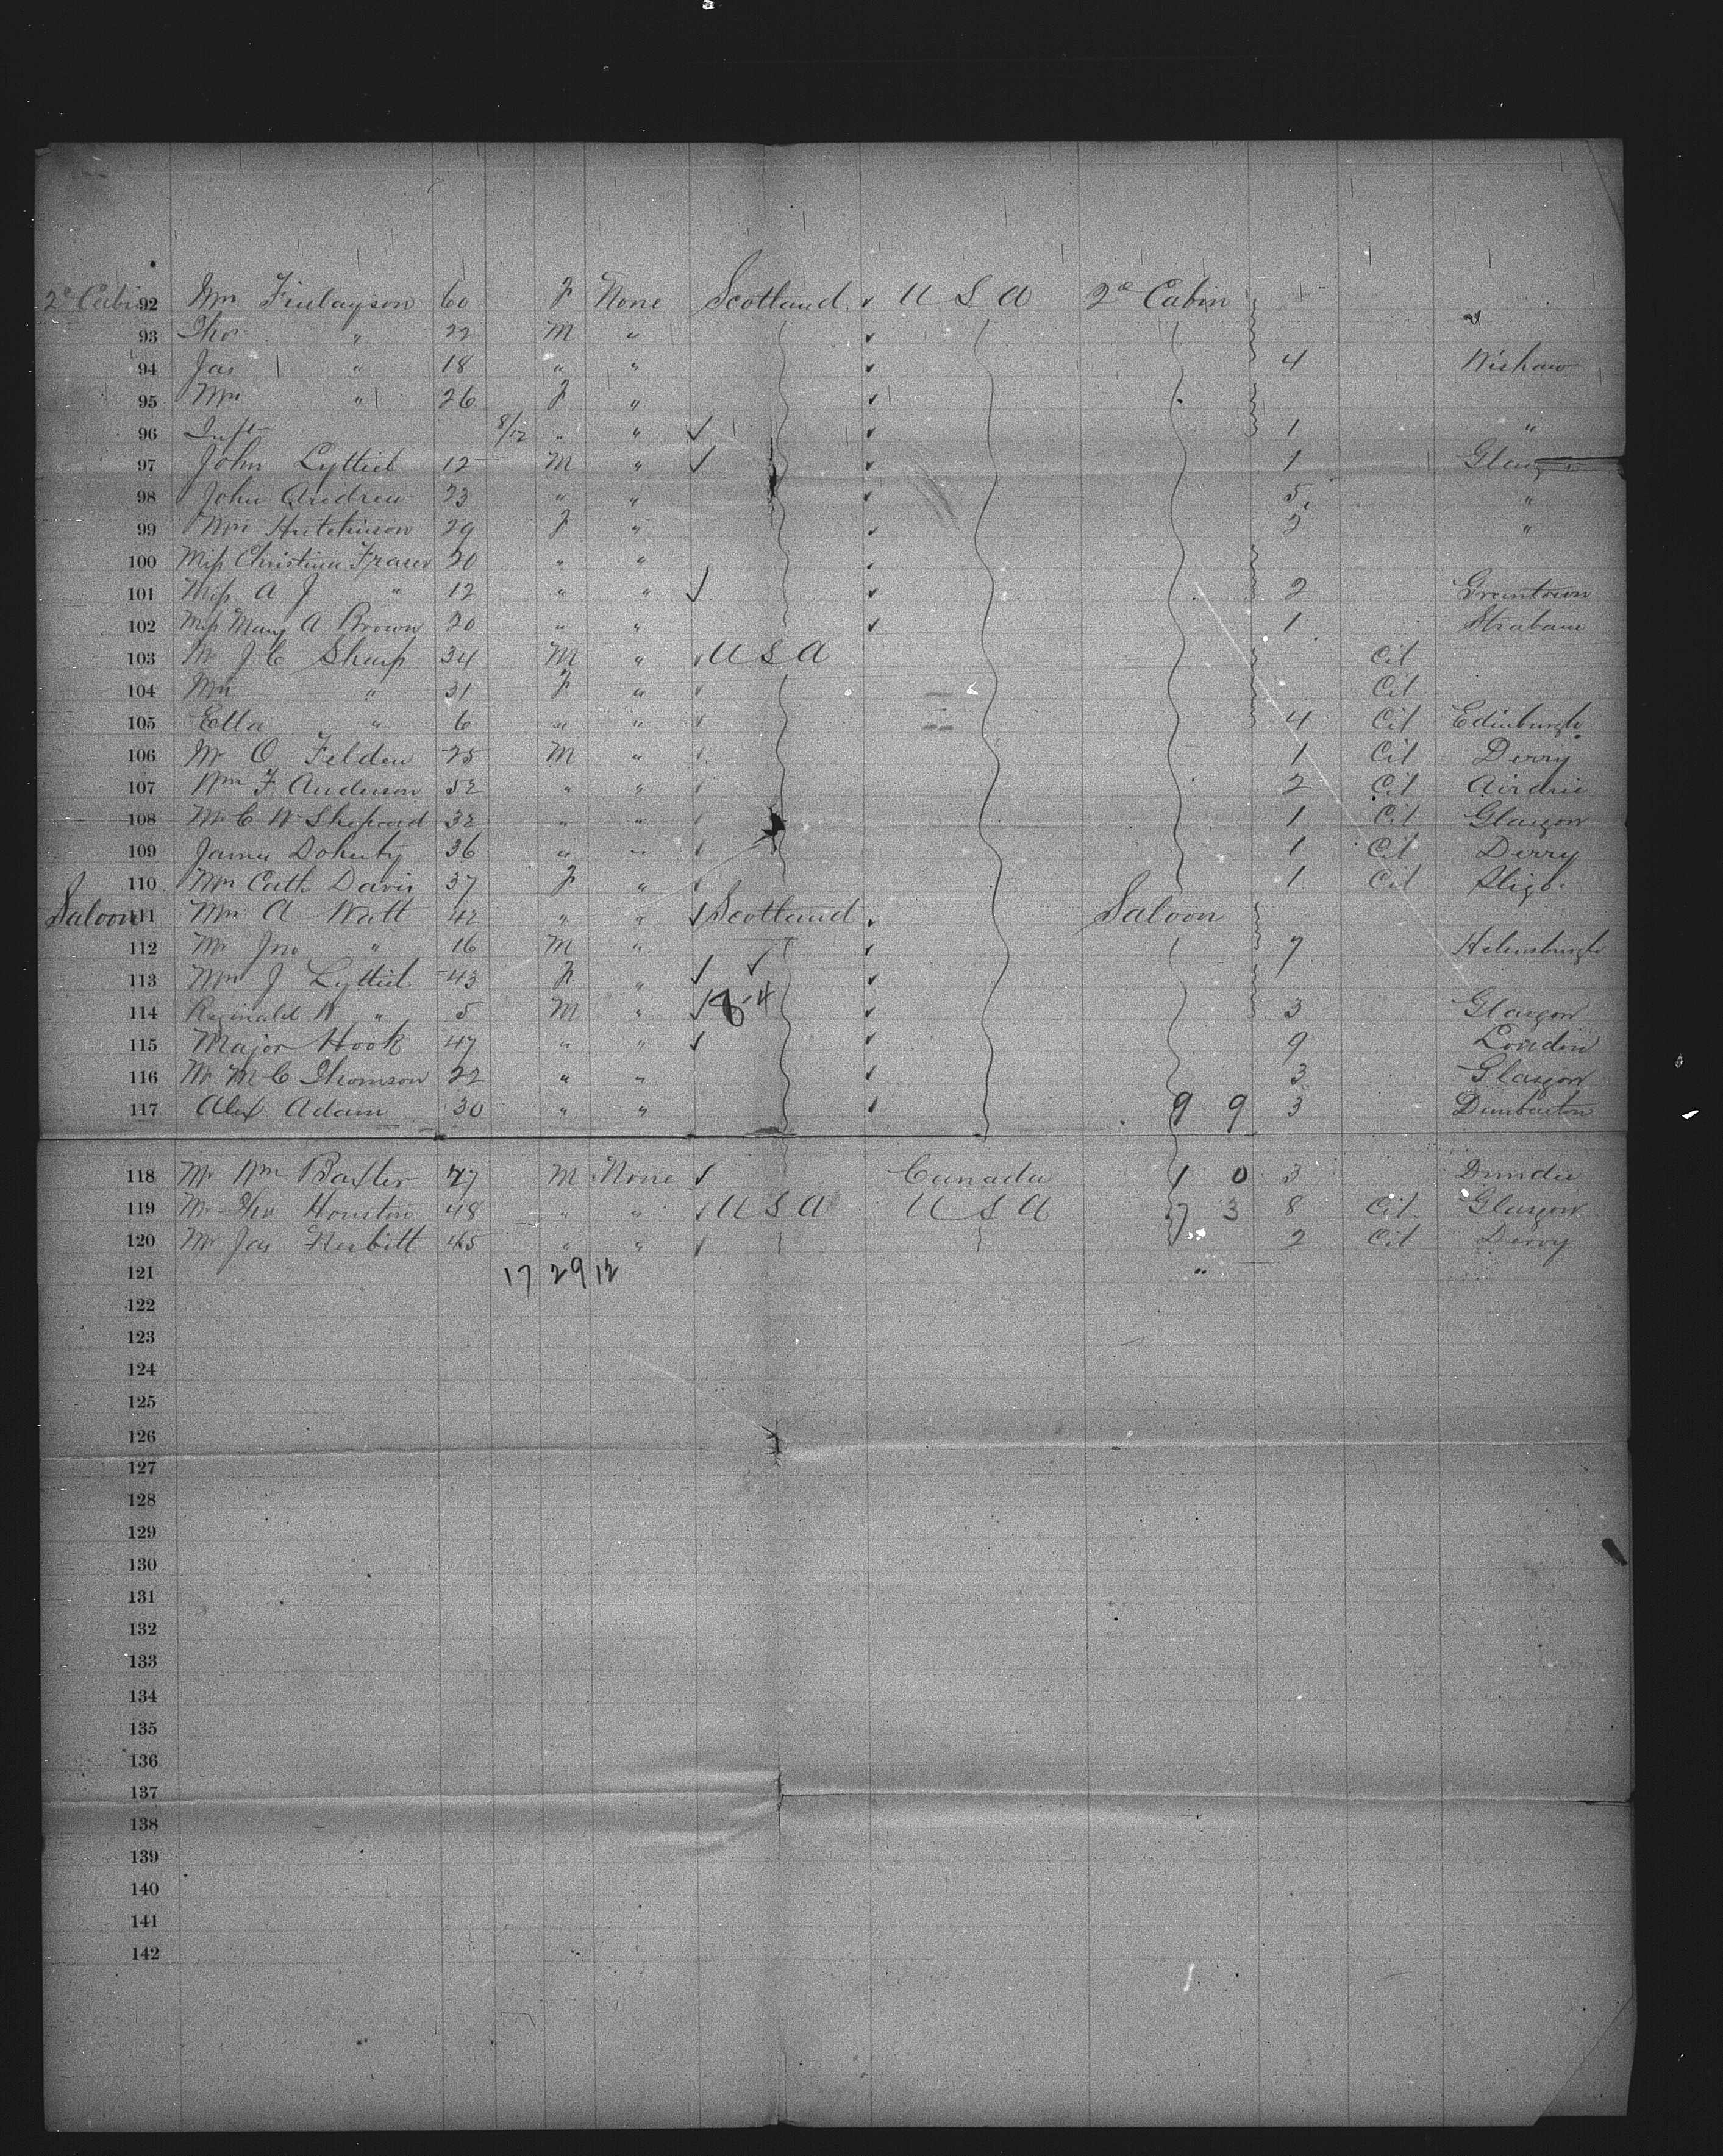 2d Cabin 92 Mrs Finlayson 60 F None Scotland ✓ U S A 2d Cabin
93 Tho " 22 M " ✓
94 Jas " 18 " " ✓ 4 Wishaw
95 Mrs " 26 F " ✓
96 Inft 8/12 " " ✓ ✓ 1 "
97 John Lyttiel 12 M " ✓ ✓ 1
98 John Andrew 23 " " ✓ 5 "
99 Mrs Hutchinson 29 F " ✓ 2 "
100 Miss Christina Fraser 20 " " ✓
101 Miss A J " 12 " " ✓ ✓ 2 Grantown
102 Miss Mary A Brown 20 " " ✓ 1 Strabane
103 Mr J C Sharp 34 M " ✓ U S A Cit
104 Mrs " 31 F " ✓ Cit
105 Ella " 6 " " ✓ 4 Cit Edinburgh
106 Mr O Felden 25 M " ✓ 1 Cit Derry
107 Wm F Anderson 52 " " ✓ 2 Cit Airdrie
108 Mr C W Shepard 32 " " ✓ 1 Cit Glasgow
109 James Doherty 36 " " ✓ 1 Cit Derry
110 Mrs Cath Davis 37 F " ✓ 1 Cit Sligo
Saloon 111 Mrs A Watt 42 " " ✓ Scotland ✓ Saloon
112 Mr Jno " 16 M " ✓ 7 Helensburgh
113 Mrs J Lyttiel 43 F " ✓ ✓ ✓
114 Reginald W " 5 M " ✓ 8-4 ✓ 3 Glasgow
115 Major Hook 47 " " ✓ ✓ 9 London
116 Mr M C Thomson 22 " " ✓ 3 Glasgow
117 Alex Adam 30 " " ✓ 9 9 3 Dumbarton
118 Mr Wm Baxter 47 M None ✓ Canada 1 0 3 Dundee
119 Mr Tho Houston 48 " " ✓ U S A U S A 7 3 8 Cit Glasgow
120 Mr Jas Nesbitt 45 " " ✓ 2 Cit Derry
121 17 29 12
122
123
124
125
126
127
128
129
130
131
132
133
134
135
136
137
138
139
140
141
142